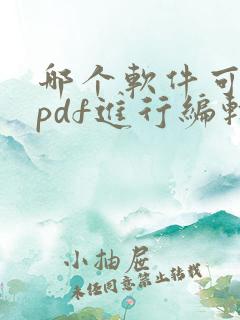 哪个軟件可
pdf進行編輯
小抽屉
未经同意禁止转载